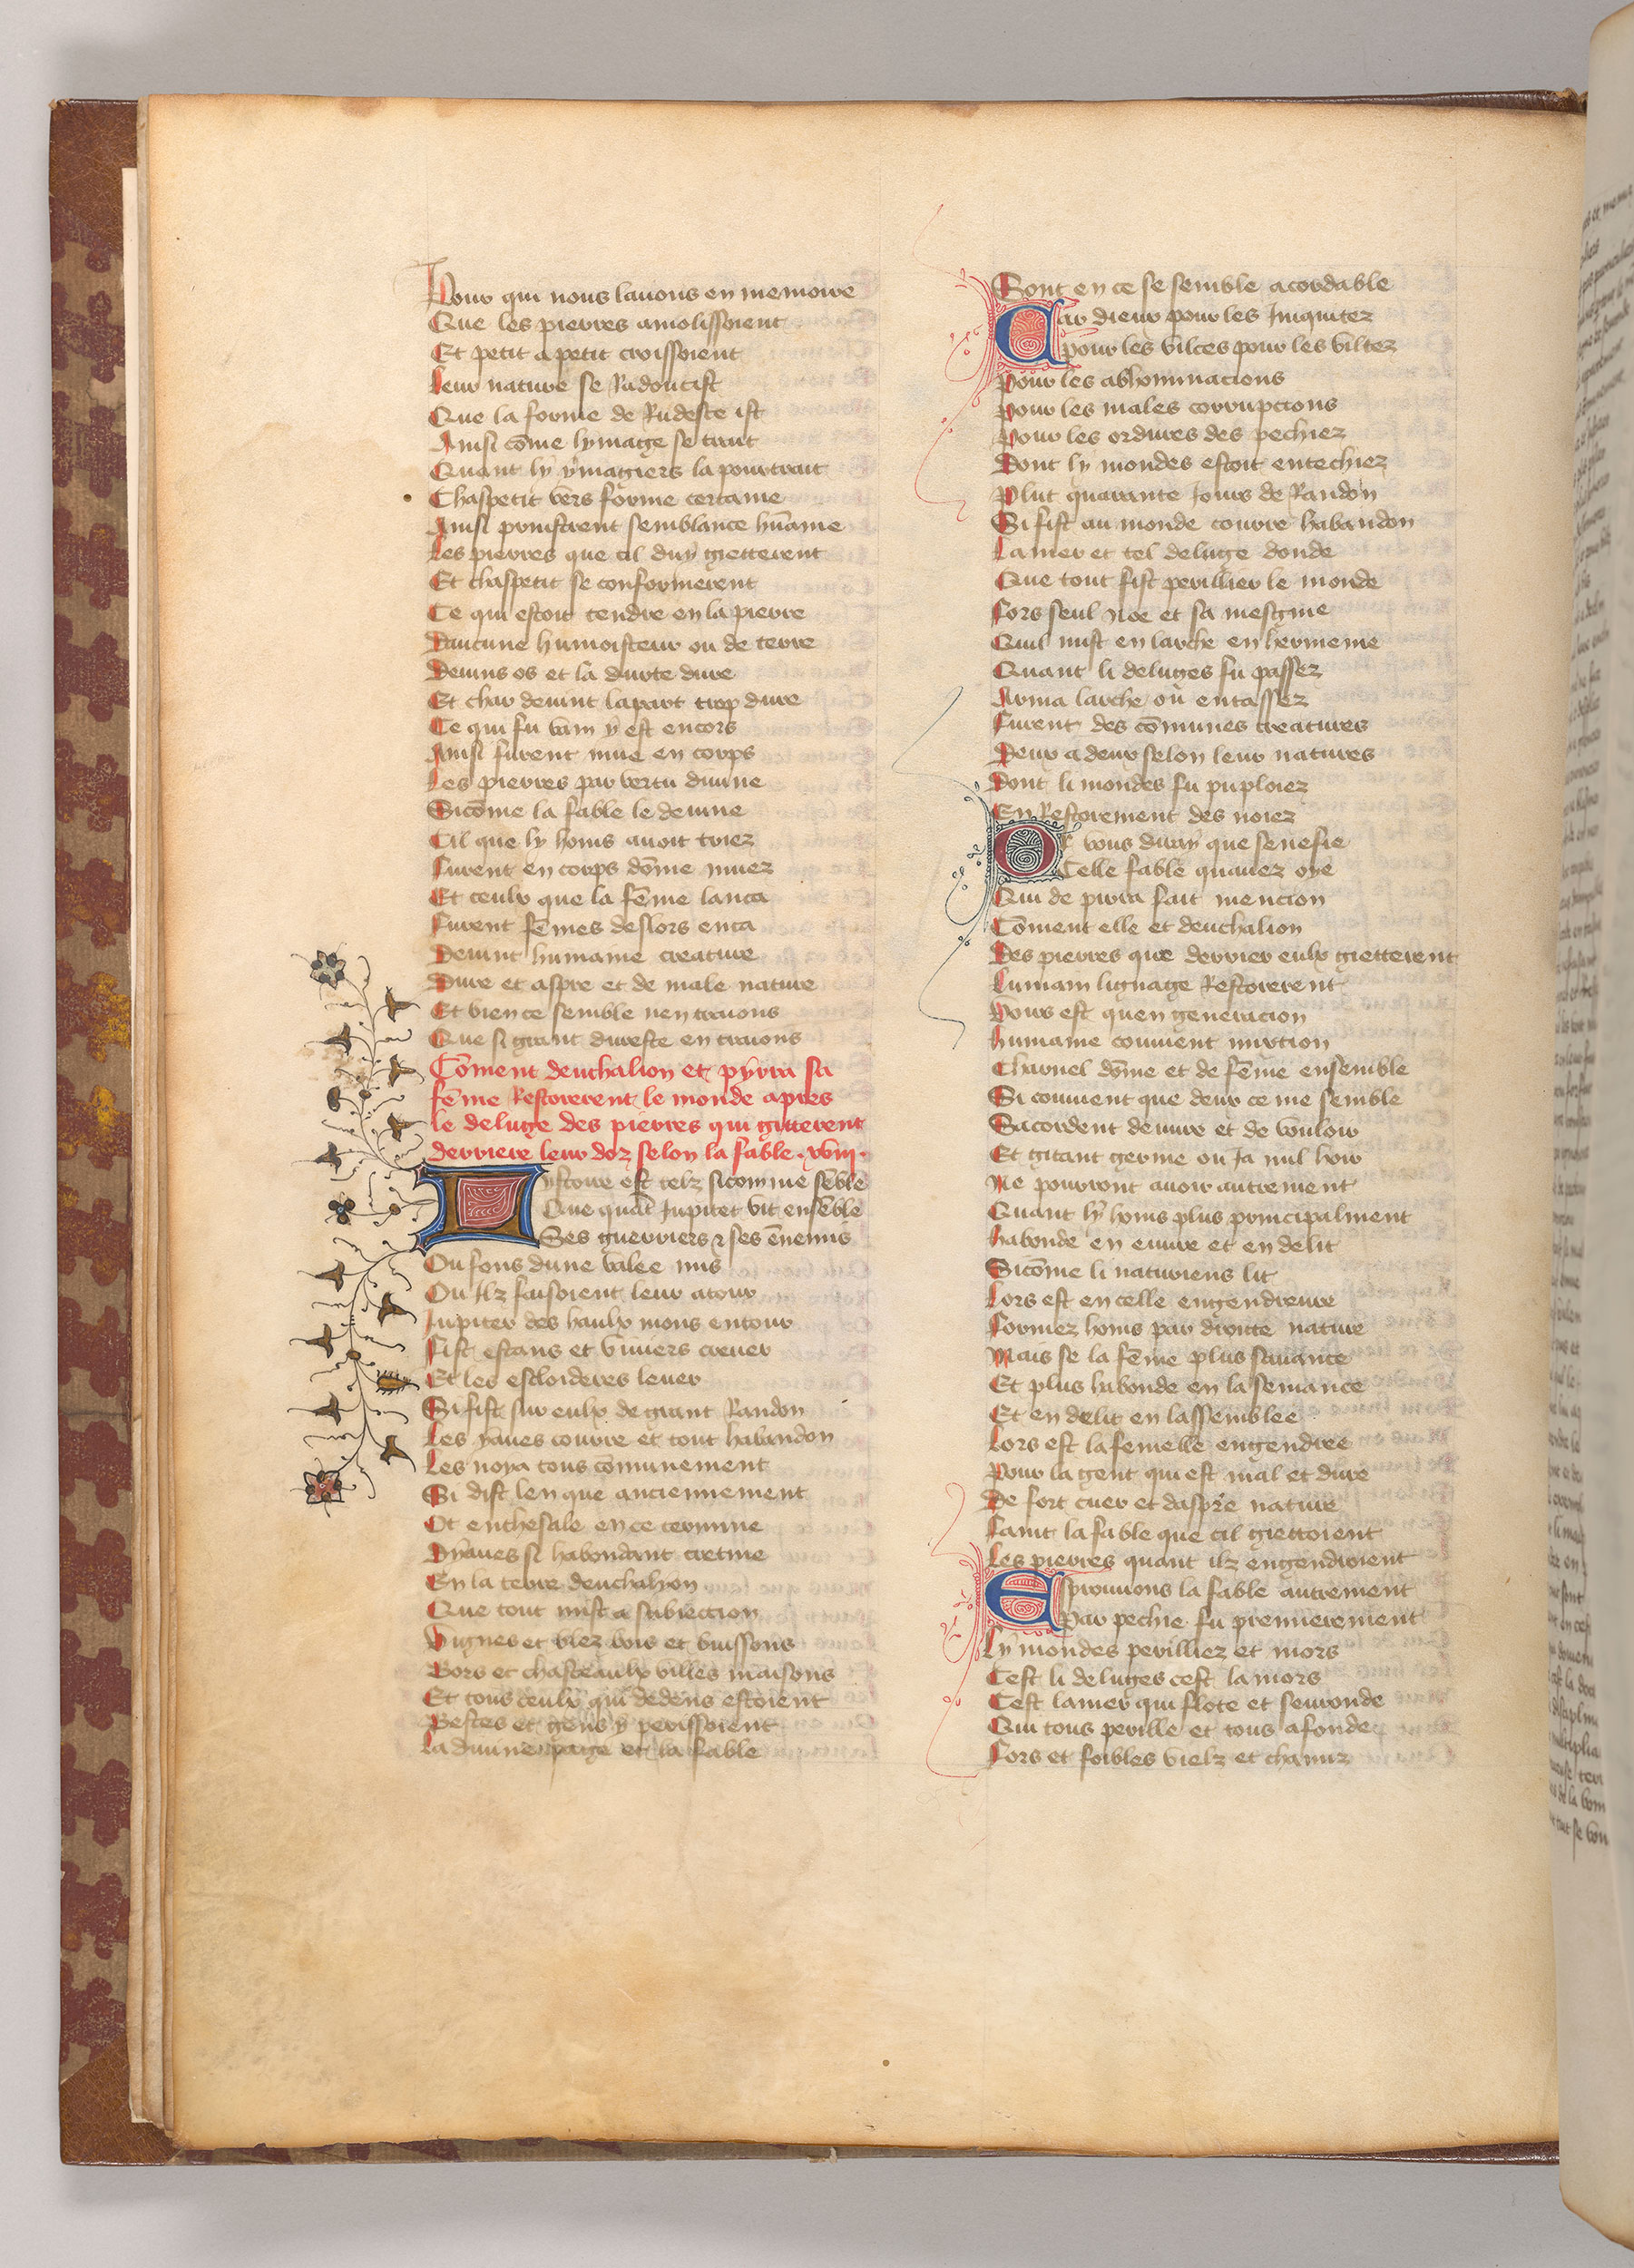 Pour qui nous lauons en memoire
Que les pierres amolissoient
Et petit a petit croissoient
Leur nature se Radoucist
Que la forme de Rudeste ist
Ainsi cõme lymage se trait
Quant ly ymagiers la pourtrait
Chaspetit vers forme certaine
Ainsi prinstrent semblance hũaine
Les pierres que cil duy getterent
Et chaspetit se conformerent
Ce qui estoit tendre en la pierre
Daucune humoisteur ou de terre
Deuins os et la durte dure
Et char deuint la part trop dure
Ce qui fu vain y est encors
Ainsi furent mue en corps
Les pierres par vertu diuine
Sicõme la fable le deuine
Cil que ly homs auoit triez
Furent en corps dõme muez
Et ceulx que la fẽme lanca
Furent fẽmes deslors enca
Deuint humaine creature
Dure et aspre et de male nature
Et bien ce semble nen trauons
Que si grant dureste en trauons
Cõment deuchalion et pyrra sa
fẽme Restorerent le monde apres
le deluge des pierres qui gitterent
derriere leur doz selon la fable . xviij .
Lystoire est telz sicomme sẽble
Que quãt Jupiter vit ensẽble
Ses guerriers & ses ẽnemis
Ou fons dune valee mis
Ou Ilz faisoient leur atour
Jupiter des haulx mons entour
Fist estans et viuiers creuer
Et les escloideres leuer
Si fist sur eulx de grant Randon
Les yaues courre et tout habandon
Les noya tous cõmunement
Si dist len que anciennement
Ot enthesale en ce termine
Dyaues si habondant cretine
En la terre deuchalyon
Que tout mist a subiection
Vignes et blez bois et buissons
Bors et chasteaulx villes maisons
Et tous ceulx qui dedens estoient
Bestes et gens y perissoient
La diuine page et la fable
Sont en ce se semble acordable
Car dieux pour les Iniquitez
pour les vilces pour les viltez
Pour les abhominacions
Pour les males corrupcions
Pour les ordures des pechiez
Dont ly mondes estoit entechiez
Plut quarante Jours de Randon
Si fist au monde courre habandon
La mer et tel deluge donde
Que tout fist perillier le monde
Fors seul Noe et sa mesgnie
Quil mist en larche en hermenie
Quant li deluges fu passez
Arriua larche ou entassez
Furent des cõmunes creatures
Deux a deux selon leur natures
Dont li mondes fu puploiez
En Restorement des noiez
Or vous diray que senefie
Celle fable quauez oye
Qui de pirra fait mencion
Cõment elle et deuchalion
Des pierres que derrier eulx gietterent
Lumain lignage Restorerent
Voirs est quen generacion
Humaine conuient mixtion
Charnel dõme et de fẽme ensemble
Si conuient que deux ce me semble
Sacordent deuure et de vouloir
Et gitant germe ou Ja nul hoir
Ne pourront auoir autrement
Quant ly homs plus principalment
Habonde en euure et en delit
Sicõme li naturiens lit
Lors est en celle engendreure
Formez homs par droite nature
Mais se la fẽme plus sauance
Et plus habonde en la semance
Et en delit en lassemblee
Lors est la femelle engendree
Pour la gent qui est mal et dure
De fort cuer et daspre nature
Faint la fable que cil giettoient
Les pierres quant ilz engendroient
Esprouuons la fable autrement
Par pechie fu premierement
Ly mondes perilliez et mors
Cest li deluges cest la mors
Cest la mer qui flote et seuronde
Qui tous perille et tous afonde
Fors et foibles vielz et chanuz